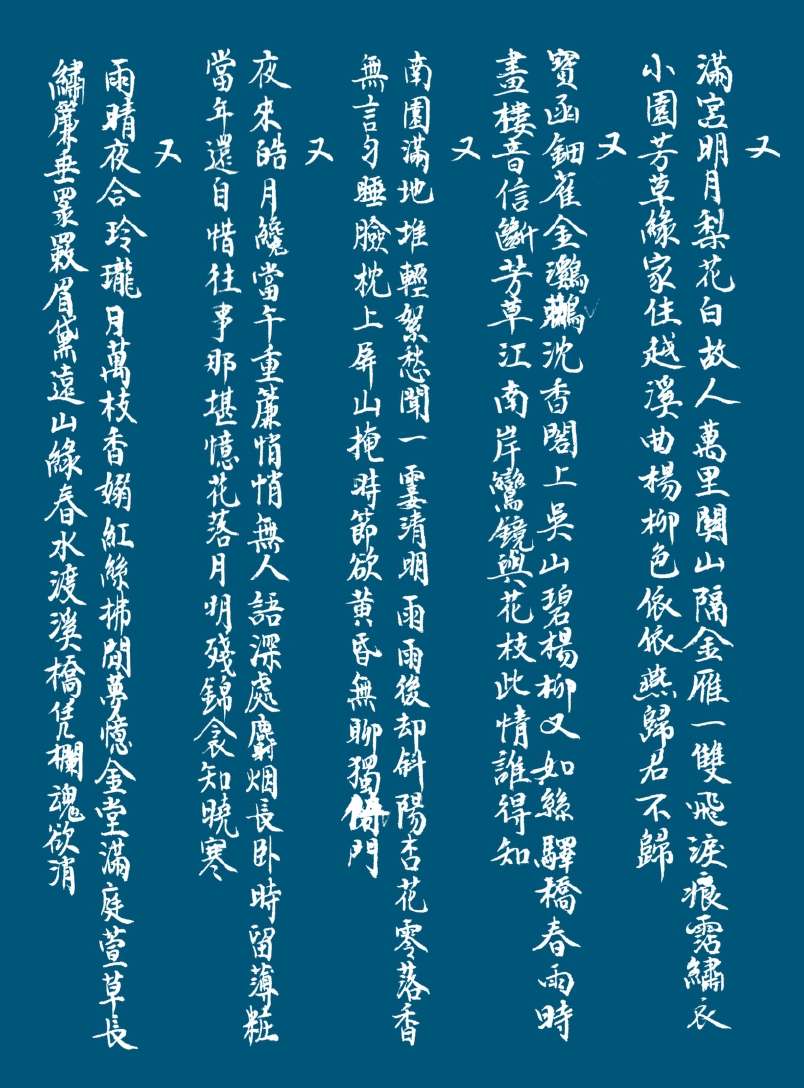 又
滿宮明月梨花白故人萬里關山隔金雁一雙飛淚痕霑繡衣
小園芳草綠家住越溪曲楊柳色依依燕歸君不歸
又
寶函鈿雀金鸂鶒沈香閣上吳山碧楊柳又如絲驛橋春雨時
畫樓音信斷芳草江南岸鸞鏡與花枝此情誰得知
又
南園滿地堆輕絮愁聞一霎清明雨雨後却斜陽杏花零落香
無言勻睡臉枕上屏山掩時節欲黃昏無聊獨倚門
又
夜來皓月纔當午重簾悄悄無人語深處麝烟長卧時留薄粧
當年還自惜往事那堪憶花落月明殘錦衾知曉寒
又
雨晴夜合玲瓏月萬枝香嫋紅絲拂閒夢憶金堂滿庭萱草長
繡簾垂䍡䍥眉黛遠山綠春水渡溪橋凭欄魂欲消